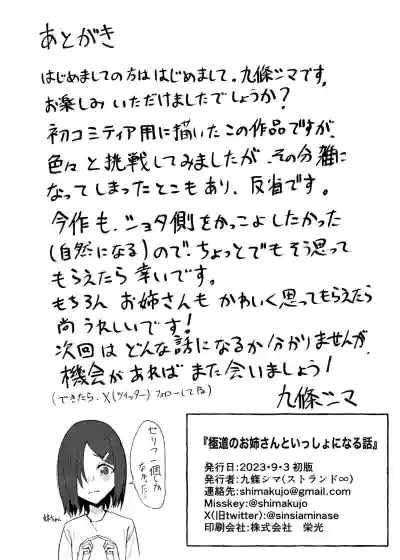 あとがき
はじめましての方ははじめまして。九條シマです。
お楽しみいただけましたでしょうか?
初コミティア用に描いたこの作品ですが、
色々と挑戦してみましたが、その分雑に
なってしまったとこもあり、反省です。
今作も、ショタ側をかっこよしたかった
(自然になる)ので、ちょっとでもそう思って
もらえたら幸いです。
もちろん お姉さんも かわいく思ってもらえたら
尚うれしいです!
次回はどんな話になるか分かりませんが、
機会があれば また会いましょう!
(できたら、X(ツイッター)フォローしてね)
九條シマ
セリフ一個しか
なかった…
妹ちゃん
『極道のお姉さんといっしょになる話』
発行日:2023・9・3 初版
発行者:九條シマ(ストランド∞)
連絡先:shimakujo@gmail.com
Misskey:@shimakujo
X(旧twitter):@sinsiaminase
印刷会社:株式会社 栄光